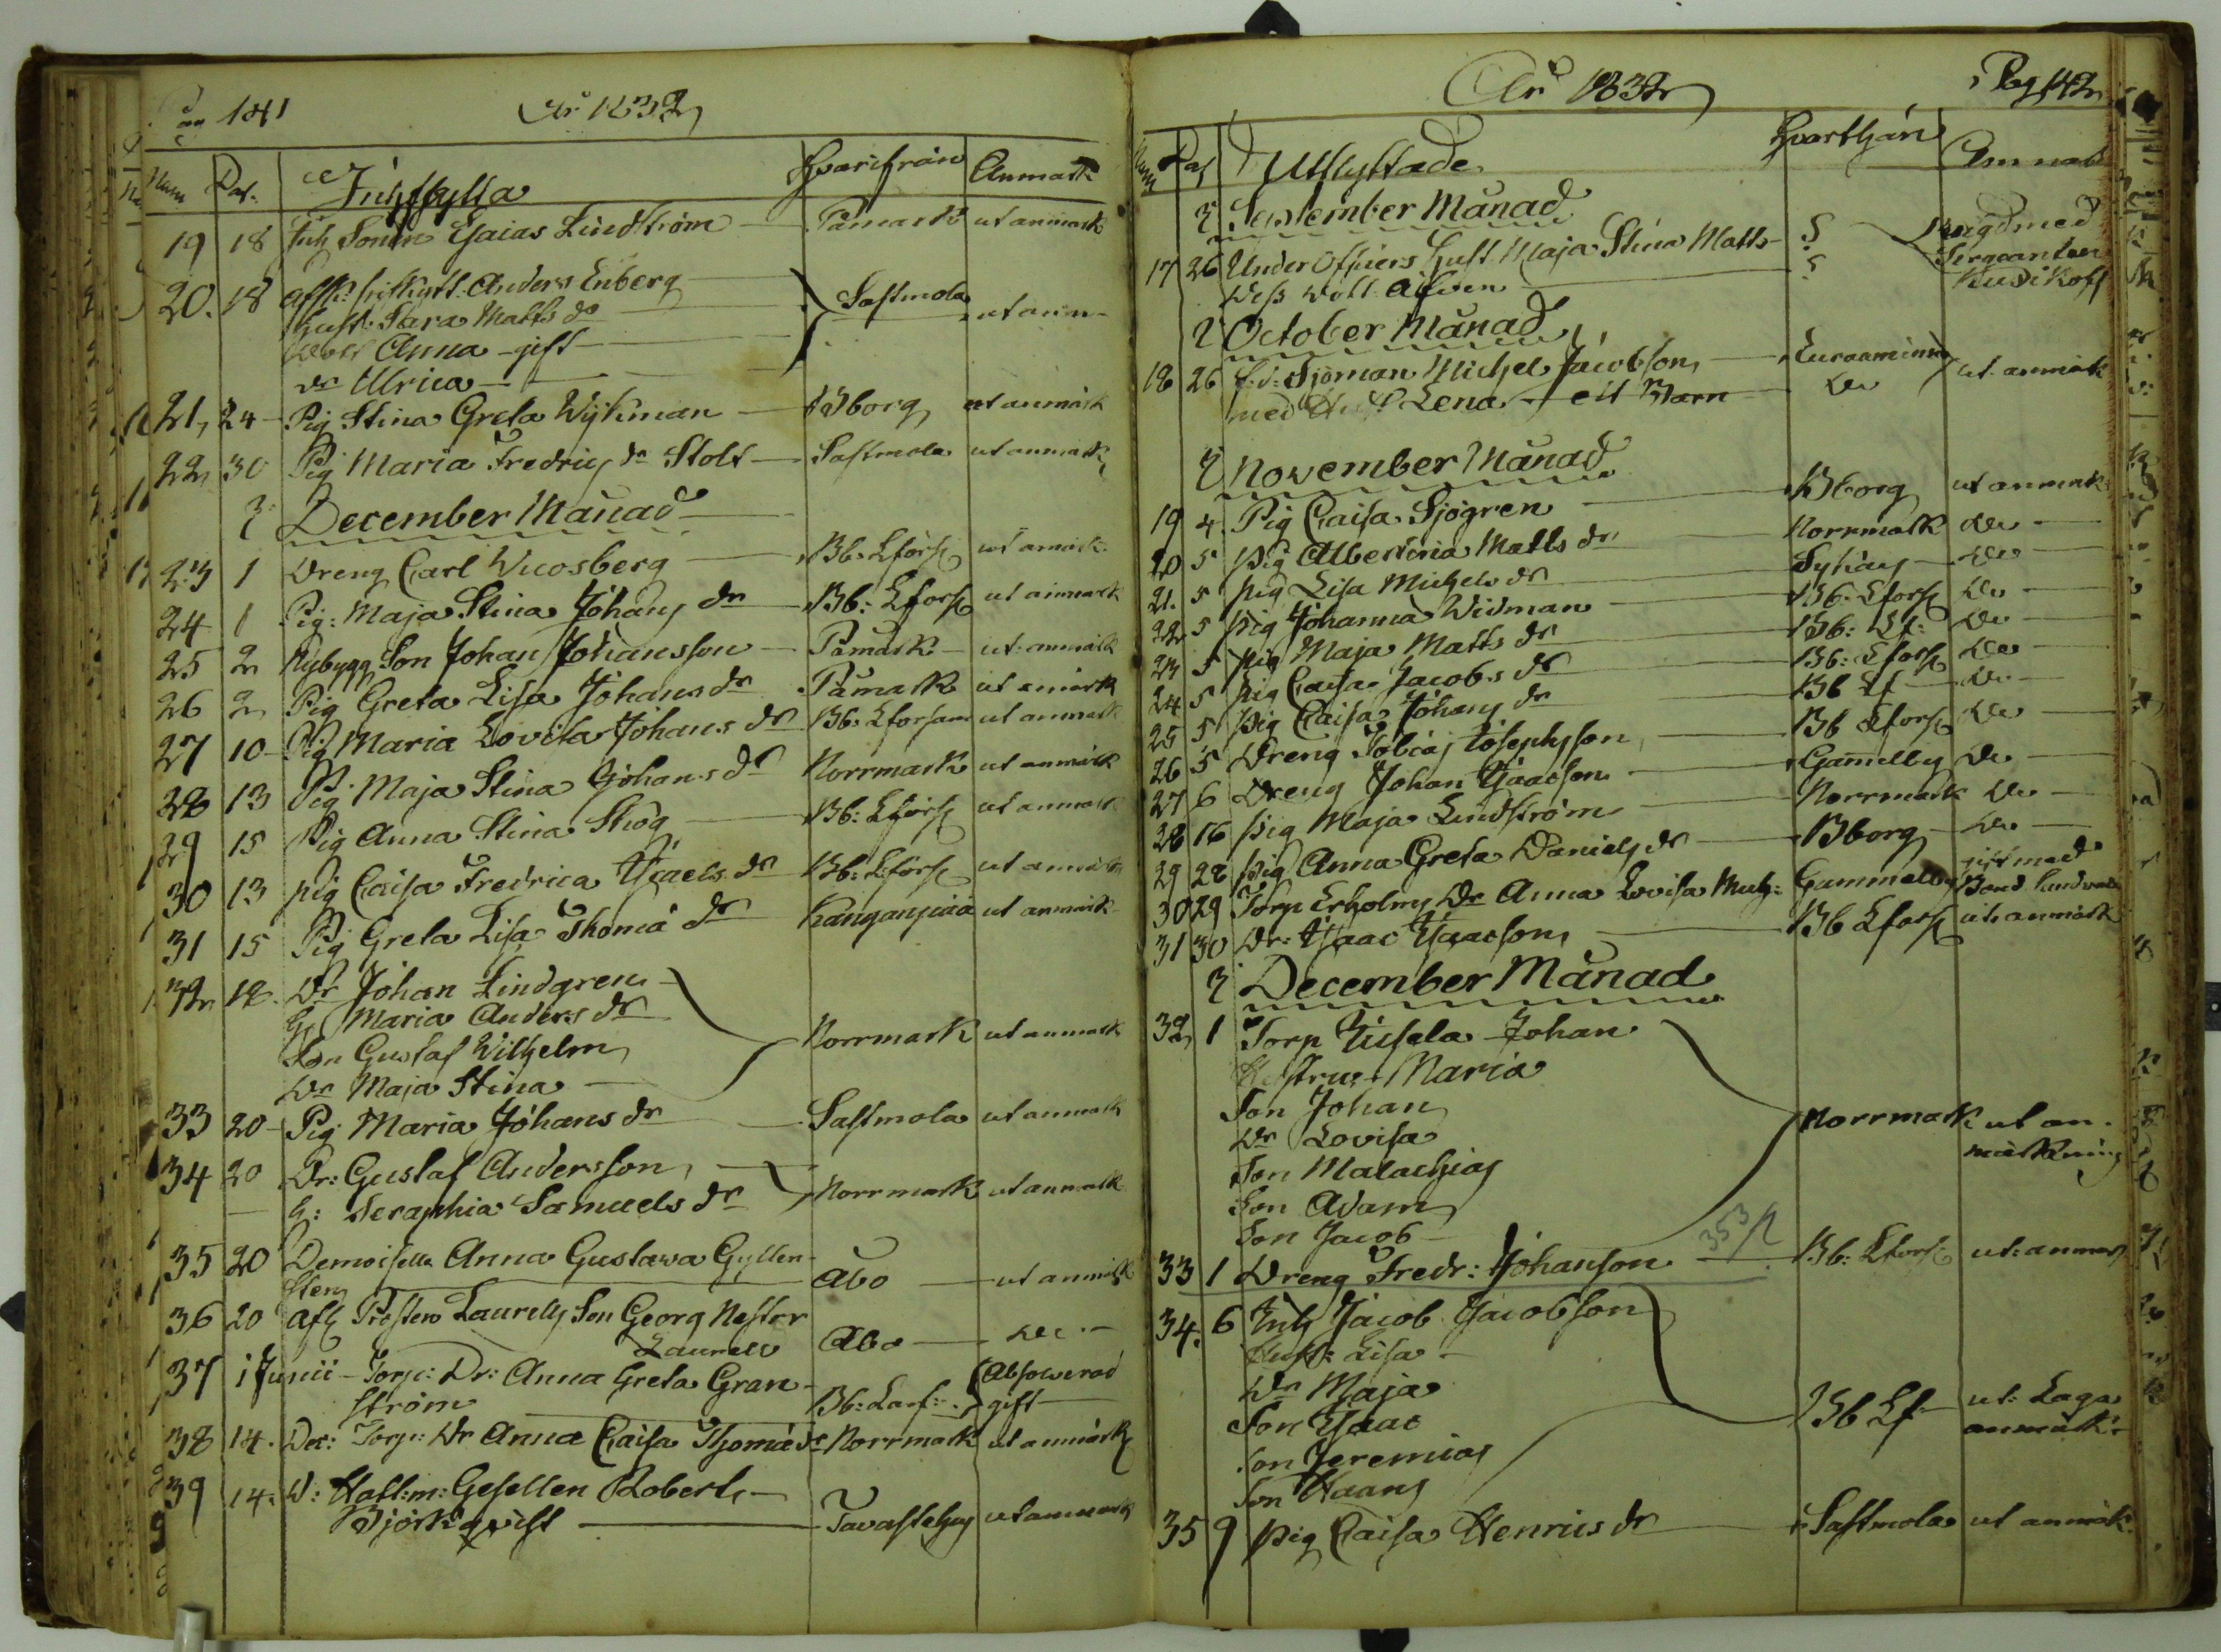 Pag 141 År 1832
Num Dat. Inhflytta Hvarifrån Anmärk
19 18 Inh Sonen Esaias Lindström Påmark ut anmärk
20. 18 Anders Enberg
Hust: Sara Matts dr Sastmola ut anm
Anna gift
dr Ulrica
21, 24 Pig Stina Greta Wijkman Bborg ut anmärk
22 30 Pig Maria Fredrics dr Stolt Sastmola ut anmärk
December Månad
23 1 Dreng Carl Wuosberg Bb: Lförs: ut anmärk
24 1 Pig: Maja Stina Johans dr Bb: Lförs: ut anmärk
25 2 Nybygg Son Johan Johansson Påmark ut anmärk
26 2 Pig Greta Lisa Johans dr Påmark ut anmärk
27 10 Pig Maria Lovisa Johans dr Bb: Lforsam ut anmärk
28 13 Pig Maja Stina Johans dr Norrmark ut anmärk
29 15 Pig Anna Stina Skog Bb: Lförs: ut anmärk
30 13 pig Caisa Fredrica Isacs dr Bb: Lförs: ut anmärk
31 15 Pig Greta Lisa Thomæ dr Kanganpää ut anmärk
32 18. Dr Johan Lindgren
H Maria Anders dr
Son Gustaf Wilhelm Norrmark ut anmärk
Dr Maja Stina
33 20 Pig Maria Johans dr Sastmola ut anmärk
34 20 Dr: Gustaf Andersson
h: Seraphia Samuels dr Norrmark ut anmärk
35 20 Demoiselle Anna Gustava Gyllen-
sten Åbo ut anmärk
36 20 Afl Prosten Laurells Son Georg Nestor
Laurell Åbo do
37 1 Junii Torp: Dr: Anna Greta Gran-
ström Bb: Lanf: Absolverad gift
38 14. Dec: Torp: Dr Anna Caisa Thomæ dr Norrmark ut anmärk
39 14. D: Hattm: Gesellen Robert
Björkqvist Tavastehus ut anmärk
År 1832 Pag 142
Num Dat Utflyttade Hvarthän Anmärk
September Månad
17 26 Under Officers Hust Maja Stina Matts- vigd med Sergeanten Kusikoff
dess dott
October Månad
18 26 f.d. Sjöman Michel Jacobson Euraaminne ut anmärk
med Hust Lena ett Barn do
November Månad
19 4. Pig Caisa Sjögren Bborg ut anmärk
20 5 Pig Albertina Matts dr Norrmark do
21. 5 pig Lisa Michels dr do
22 5 Pig Johanna Widman Bb: Lförs: do
23 5 Pig Maja Matts dr Bb: Lf: do
24 5 pig Caisa Jacobs dr Bb: Lförs: do
25 5 Pig Caisa Johans dr Bb Lf do
26 5 Dreng Tobias Josephsson Bb Lförs: do
27 6 Dreng Johan Isacsson Gammelby do
28 16 pig Maja Lindström Norrmark do
29 28 pig Anna Greta Daniels dr Bborg do
30 29 Torp Erholms Dr Anna Lovisa Mich: Gammelby gift med
31 30 Dr: Isaac Isaacson Bb Lförs: ut anmärk
December Månad
32 1 Torp Johan
Hustrun Maria
Son Johan
Dr Lovisa Norrmark ut an-
Son Malachias märkning
Son Adam
Son Jacob
353/2
33 1 Dreng Fredr: Johanson Bb: Lförs: ut: anmärk
34. 6 Inh Jacob Jacobson
Hust: Lisa
Dr Maja
Son Isaac Bb Lf ut: Laga anmärk:
Son Jeremias
Son
35 9 Pig Caisa Henrics dr Sastmola ut anmärk.